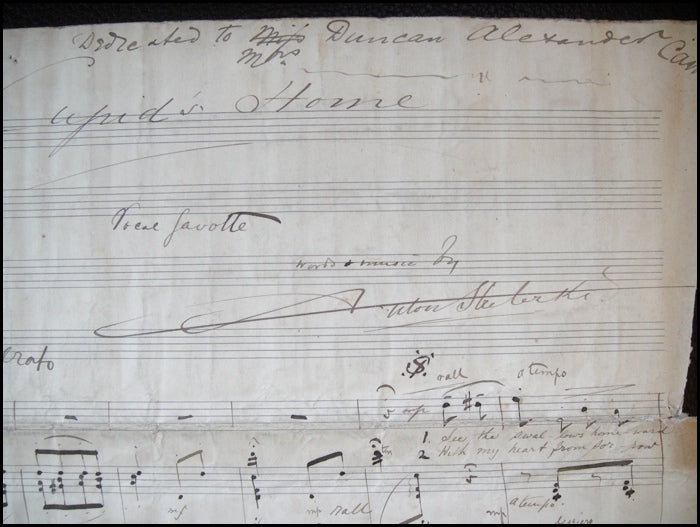 Dedicated to Miss Duncan Alexander Cam
Mrs
upid's Home
Vocal Gavotte
words & music by
Anton Strelezki
erato
rall a tempo
mp
1. See the swallows homeward
2. Hush my heart from for now
mf mp rall mp a tempo